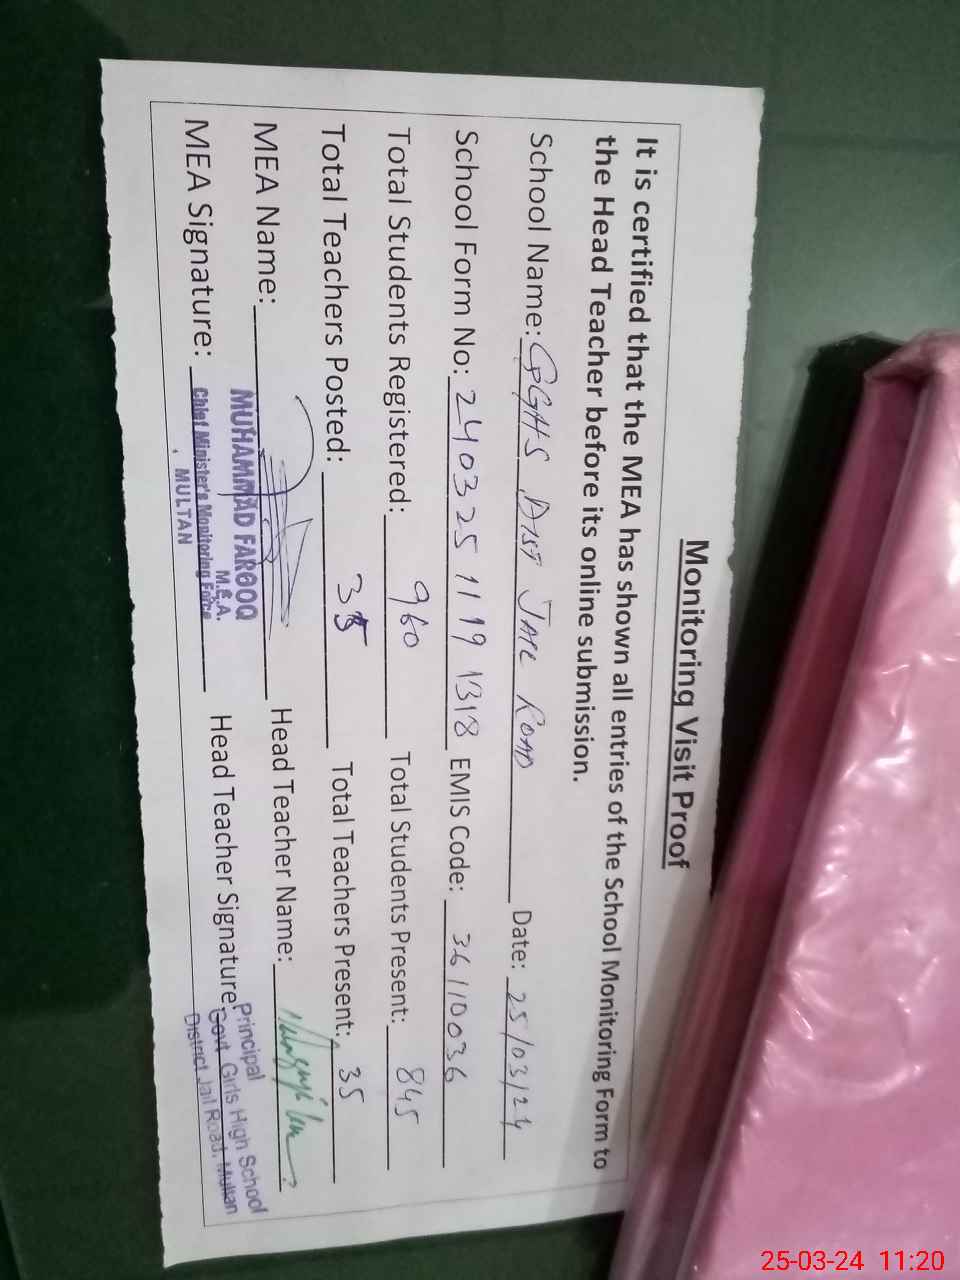 Monitoring Visit Proof
It is certified that the MEA has shown all entries of the School Monitoring Form to
the Head Teacher before its online submission.
School Name: GGHS DIST JAIL ROAD Date: 25/03/24
School Form No: 24032511191318 EMIS Code: 36110036
Total Students Registered: 960 Total Students Present: 845
Total Teachers Posted: 35 Total Teachers Present: 35
MEA Name: Head Teacher Name:
MEA Signature: Head Teacher Signature:
MUHAMMAD FAROOQ
M.E.A.
Chief Minister's Monitoring Force
MULTAN
Principal
Govt. Girls High School
District Jail Road, Multan
25-03-24 11:20